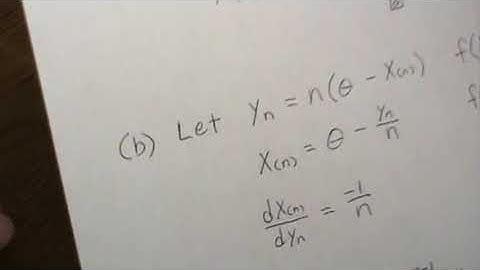 (b) Let Yn = n(θ - X(n)) f(
X(n) = θ - Yn/n f(
dX(n)/dYn = -1/n